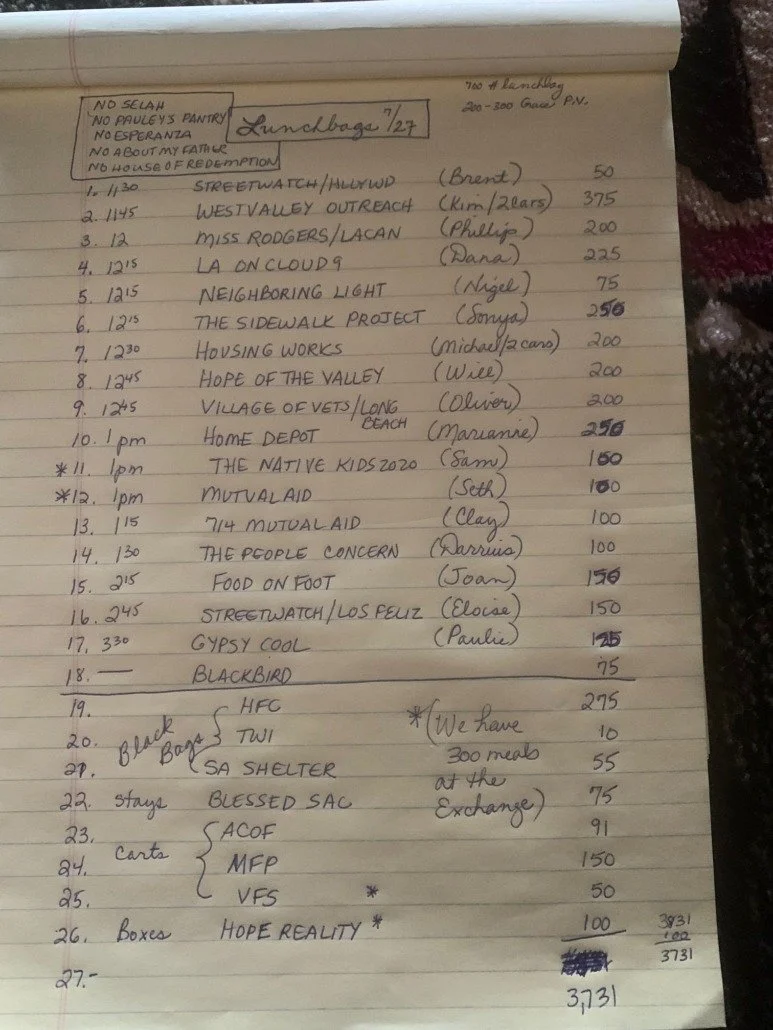 700 # lunchbag
200-300 Grace P.V.
NO SELAH
NO PAULEY'S PANTRY
NO ESPERANZA
NO ABOUT MY FATHER
NO HOUSE OF REDEMPTION
Lunchbags 7/27
1. 1130 STREETWATCH/HLLYWD (Brent) 50
2. 1145 WESTVALLEY OUTREACH (Kim/2cars) 375
3. 12 MISS RODGERS/LACAN (Phillip) 200
4. 1215 LA ON CLOUD 9 (Dana) 225
5. 1215 NEIGHBORING LIGHT (Nigel) 75
6. 1215 THE SIDEWALK PROJECT (Sonya) 250
7. 1230 HOUSING WORKS (Michael/2cars) 200
8. 1245 HOPE OF THE VALLEY (Will) 200
9. 1245 VILLAGE OF VETS/LONG BEACH (Oliver) 200
10. 1pm HOME DEPOT (Marianne) 250
*11. 1pm THE NATIVE KIDS 2020 (Sam) 100
*12. 1pm MUTUAL AID (Seth) 100
13. 115 714 MUTUAL AID (Clay) 100
14. 130 THE PEOPLE CONCERN (Darrius) 100
15. 215 FOOD ON FOOT (Joan) 150
16. 245 STREETWATCH/LOS FELIZ (Eloise) 150
17. 330 GYPSY COOL (Paulie) 125
18. — BLACKBIRD 75
19. HFC 275
20. Black Bags TWI 10
21. SA SHELTER 55
*(We have
300 meals
at the
Exchange)
22. Stays BLESSED SAC 75
23. ACOF 91
24. Carts MFP 150
25. VFS * 50
26. Boxes HOPE REALITY * 100
27.-
3,731
100
3731